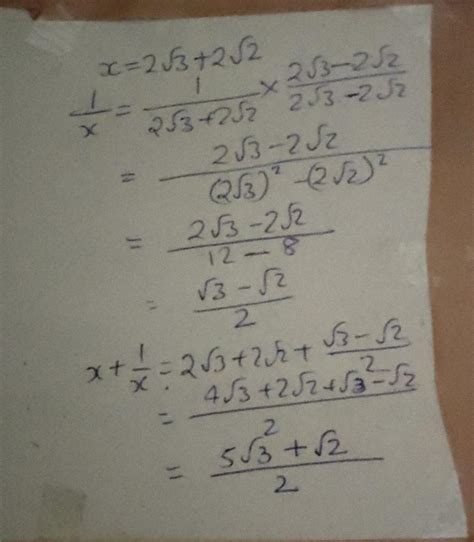 x = 2√3 + 2√2
1/x = 1/(2√3 + 2√2) × (2√3 − 2√2)/(2√3 − 2√2)
= (2√3 − 2√2)/((2√3)² − (2√2)²)
= (2√3 − 2√2)/(12 − 8)
= (√3 − √2)/2
x + 1/x = 2√3 + 2√2 + (√3 − √2)/2
= (4√3 + 2√2 + √3 − √2)/2
= (5√3 + √2)/2